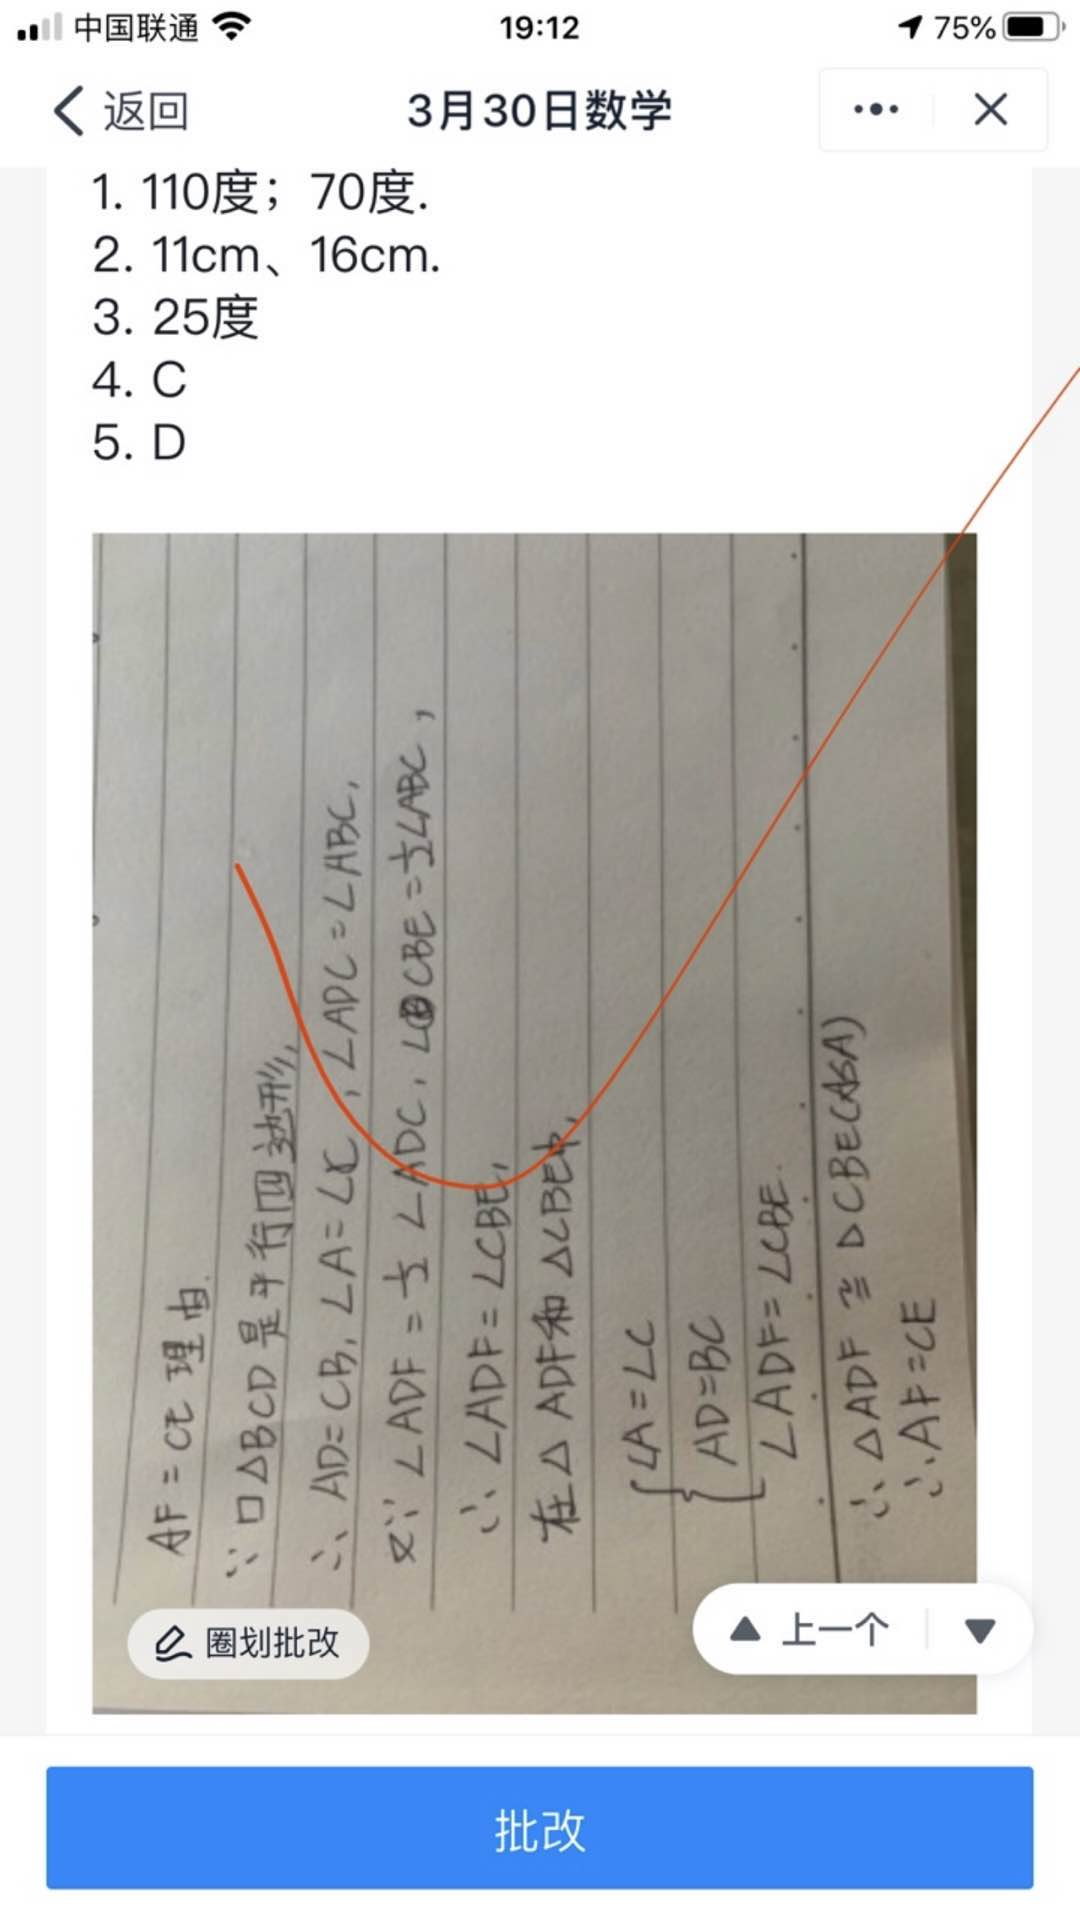 中国联通
19:12
75%
返回
3月30日数学
1. 110度；70度.
2. 11cm、16cm.
3. 25度
4. C
5. D
AF=CE 理由.
∵□ABCD是平行四边形,
∴AD=CB,∠A=∠C,∠ADC=∠ABC,
又∵∠ADF=½∠ADC,∠CBE=½∠ABC,
∴∠ADF=∠CBE,
在△ADF和△CBE中,
∠A=∠C
AD=BC
∠ADF=∠CBE.
∴△ADF≌△CBE(ASA)
∴AF=CE
圈划批改
上一个
批改